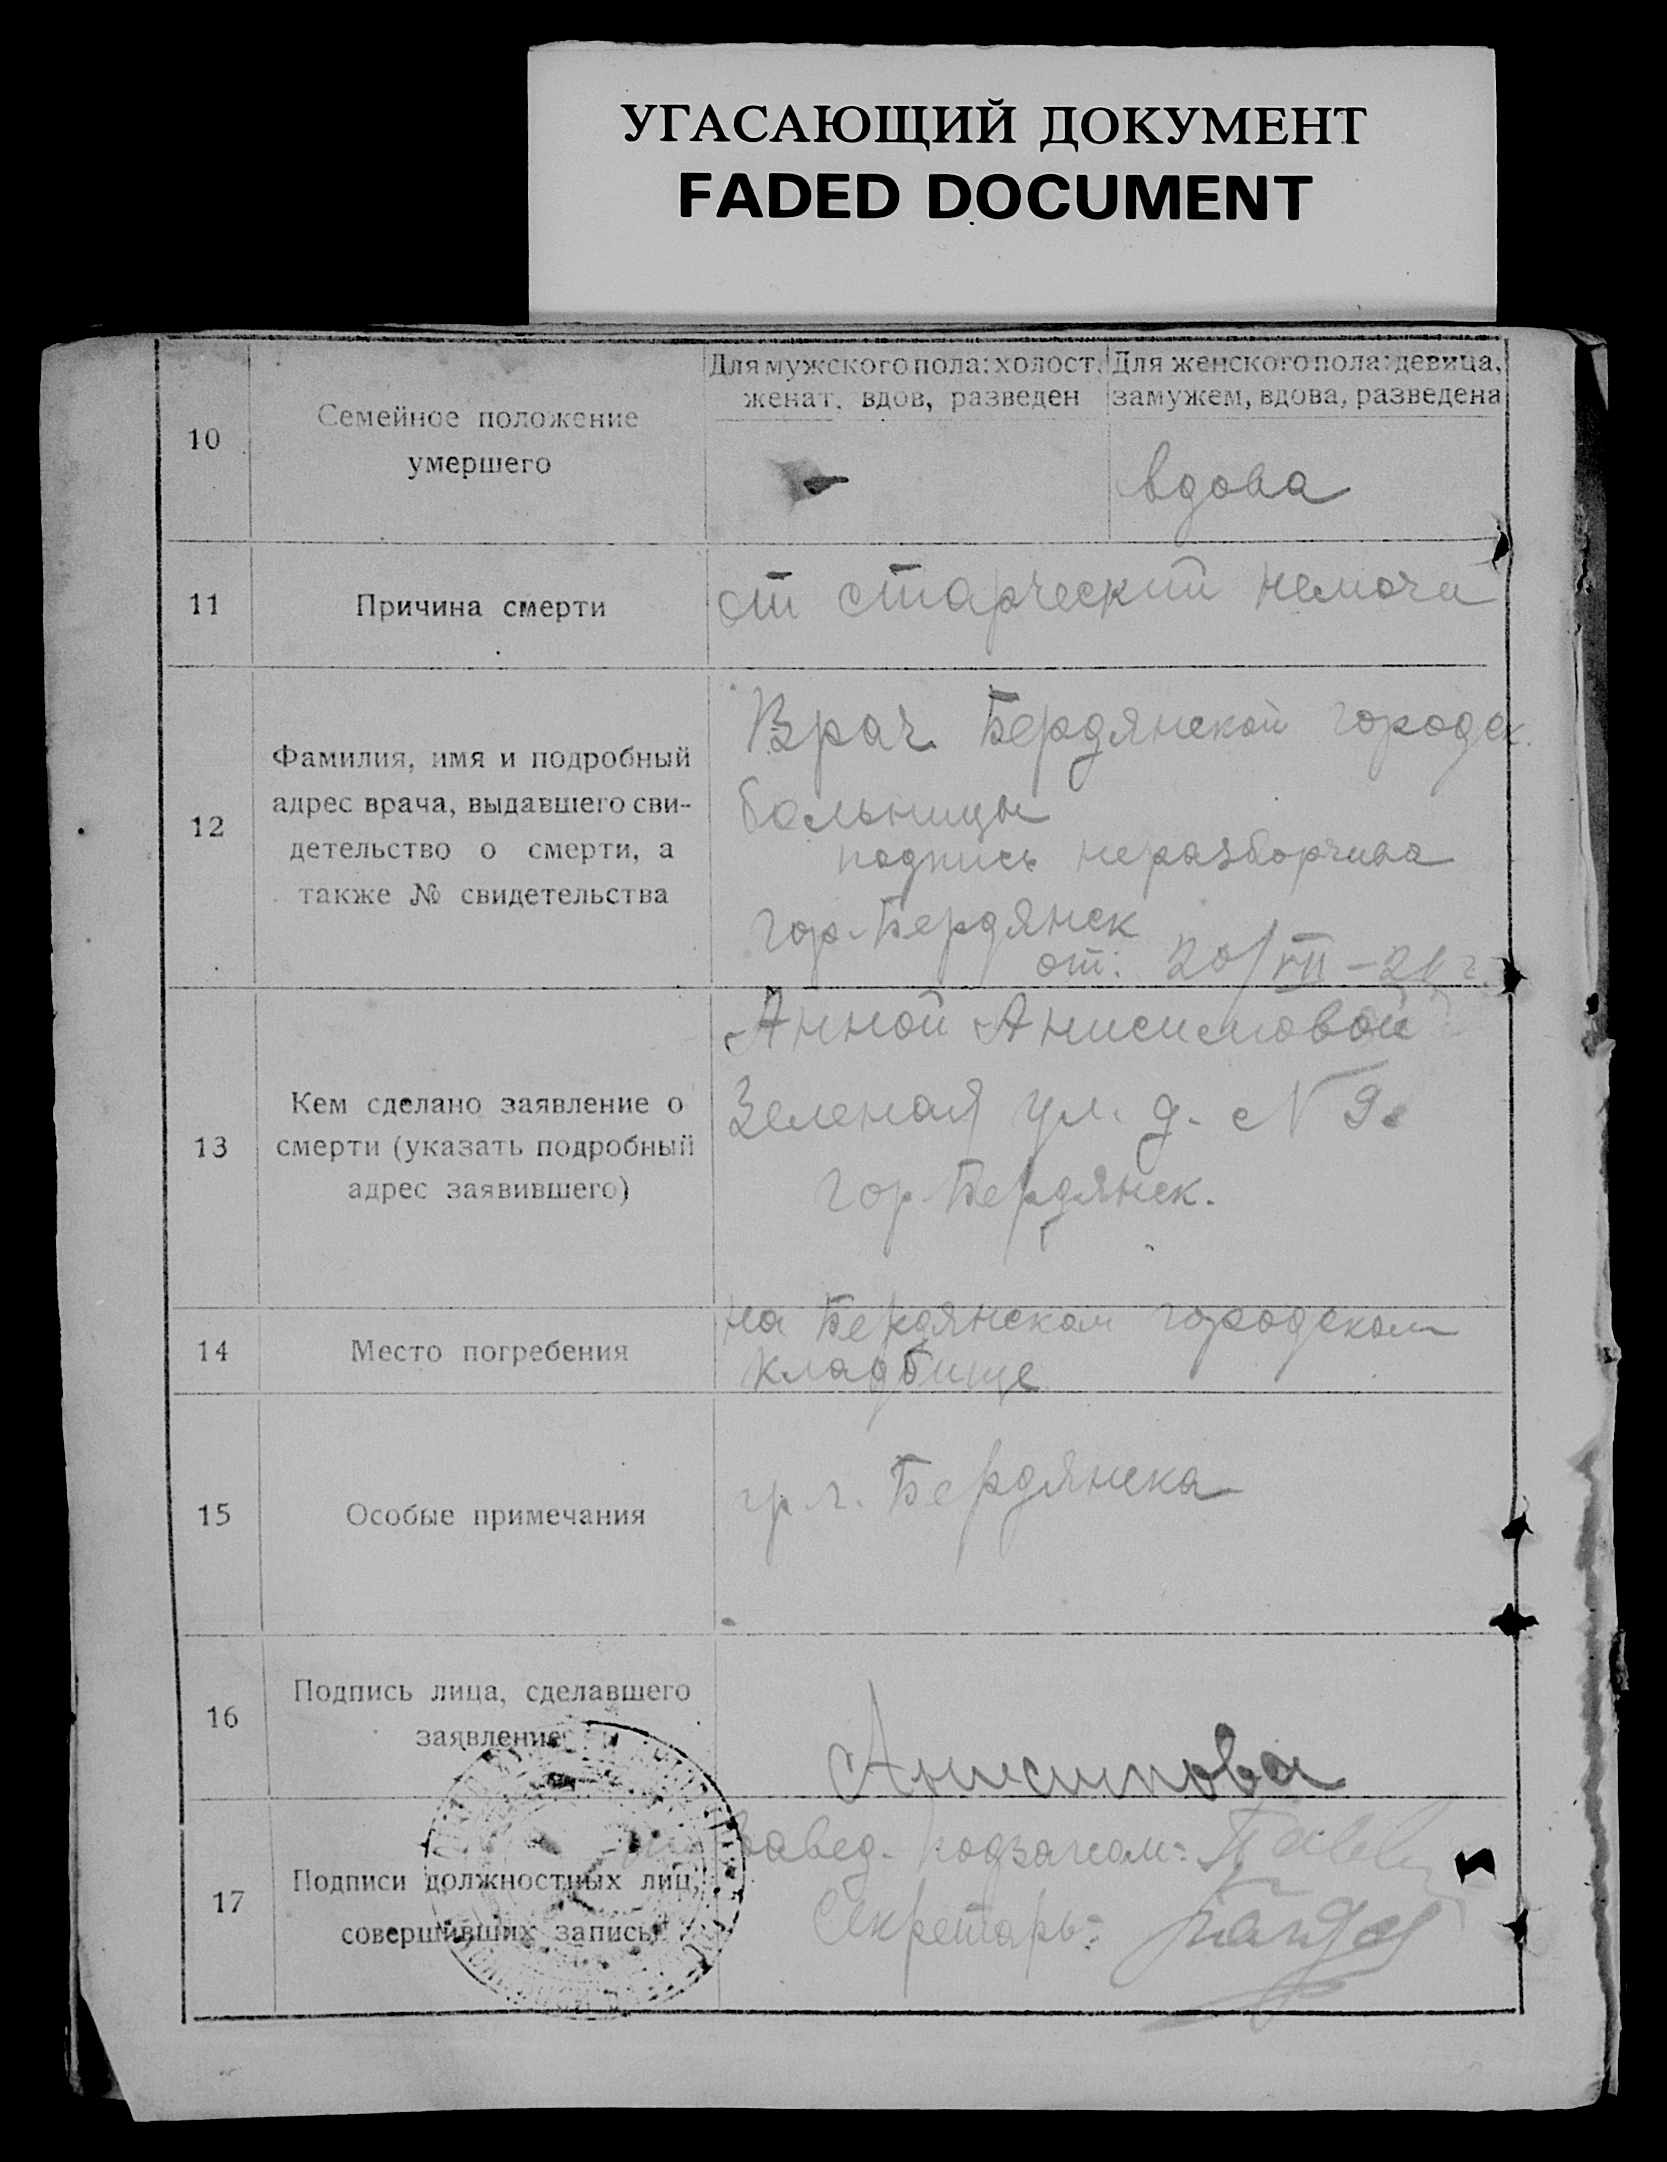 УГАСАЮЩИЙ ДОКУМЕНТ
FADED DOCUMENT
10
Семейное положение
умершего
Для мужского пола: холост,
женат, вдов, разведен
Для женского пола: девица,
замужем, вдова, разведена
вдова
11
Причина смерти
от старческий немочи
12
Фамилия, имя и подробный
адрес врача, выдавшего сви-
детельство о смерти, а
также № свидетельства
Врач Бердянской городск.
больницы
подпись неразборчива
гор. Бердянск
от: 20/VII
13
Кем сделано заявление о
смерти (указать подробный
адрес заявившего)
Анной Анисимовой
Зеленая ул. д. N 9
гор. Бердянск.
14
Место погребения
на Бердянском городском
кладбище
15
Особые примечания
гр. г. Бердянска
16
Подпись лица, сделавшего
заявление
Анисимова
17
Подписи должностных лиц,
совершивших запись
Завед. подзагсом:
Секретарь: